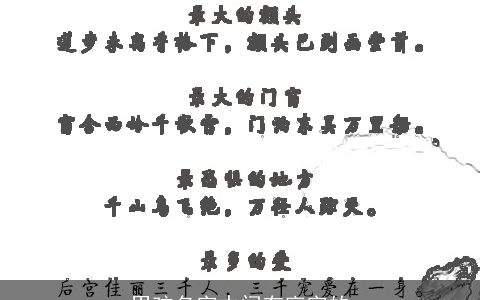 最大的额头
莲步未离香格下，额头已到画堂前。
最大的门窗
窗含西岭千秋雪，门泊东吴万里船。
最恐惧的地方
千山鸟飞绝，万径人踪灭。
最多的爱
后宫佳丽三千人，三千宠爱在一身。